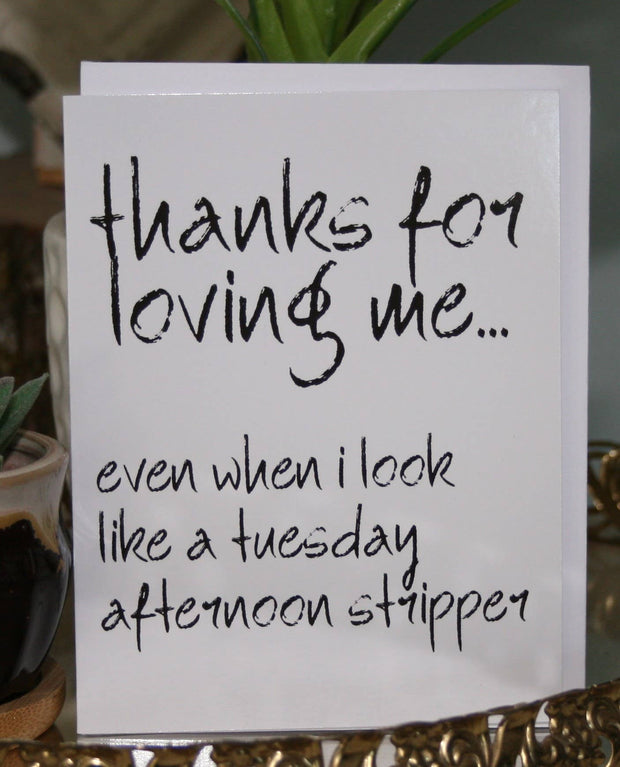 thanks for
loving me...
even when i look
like a tuesday
afternoon stripper